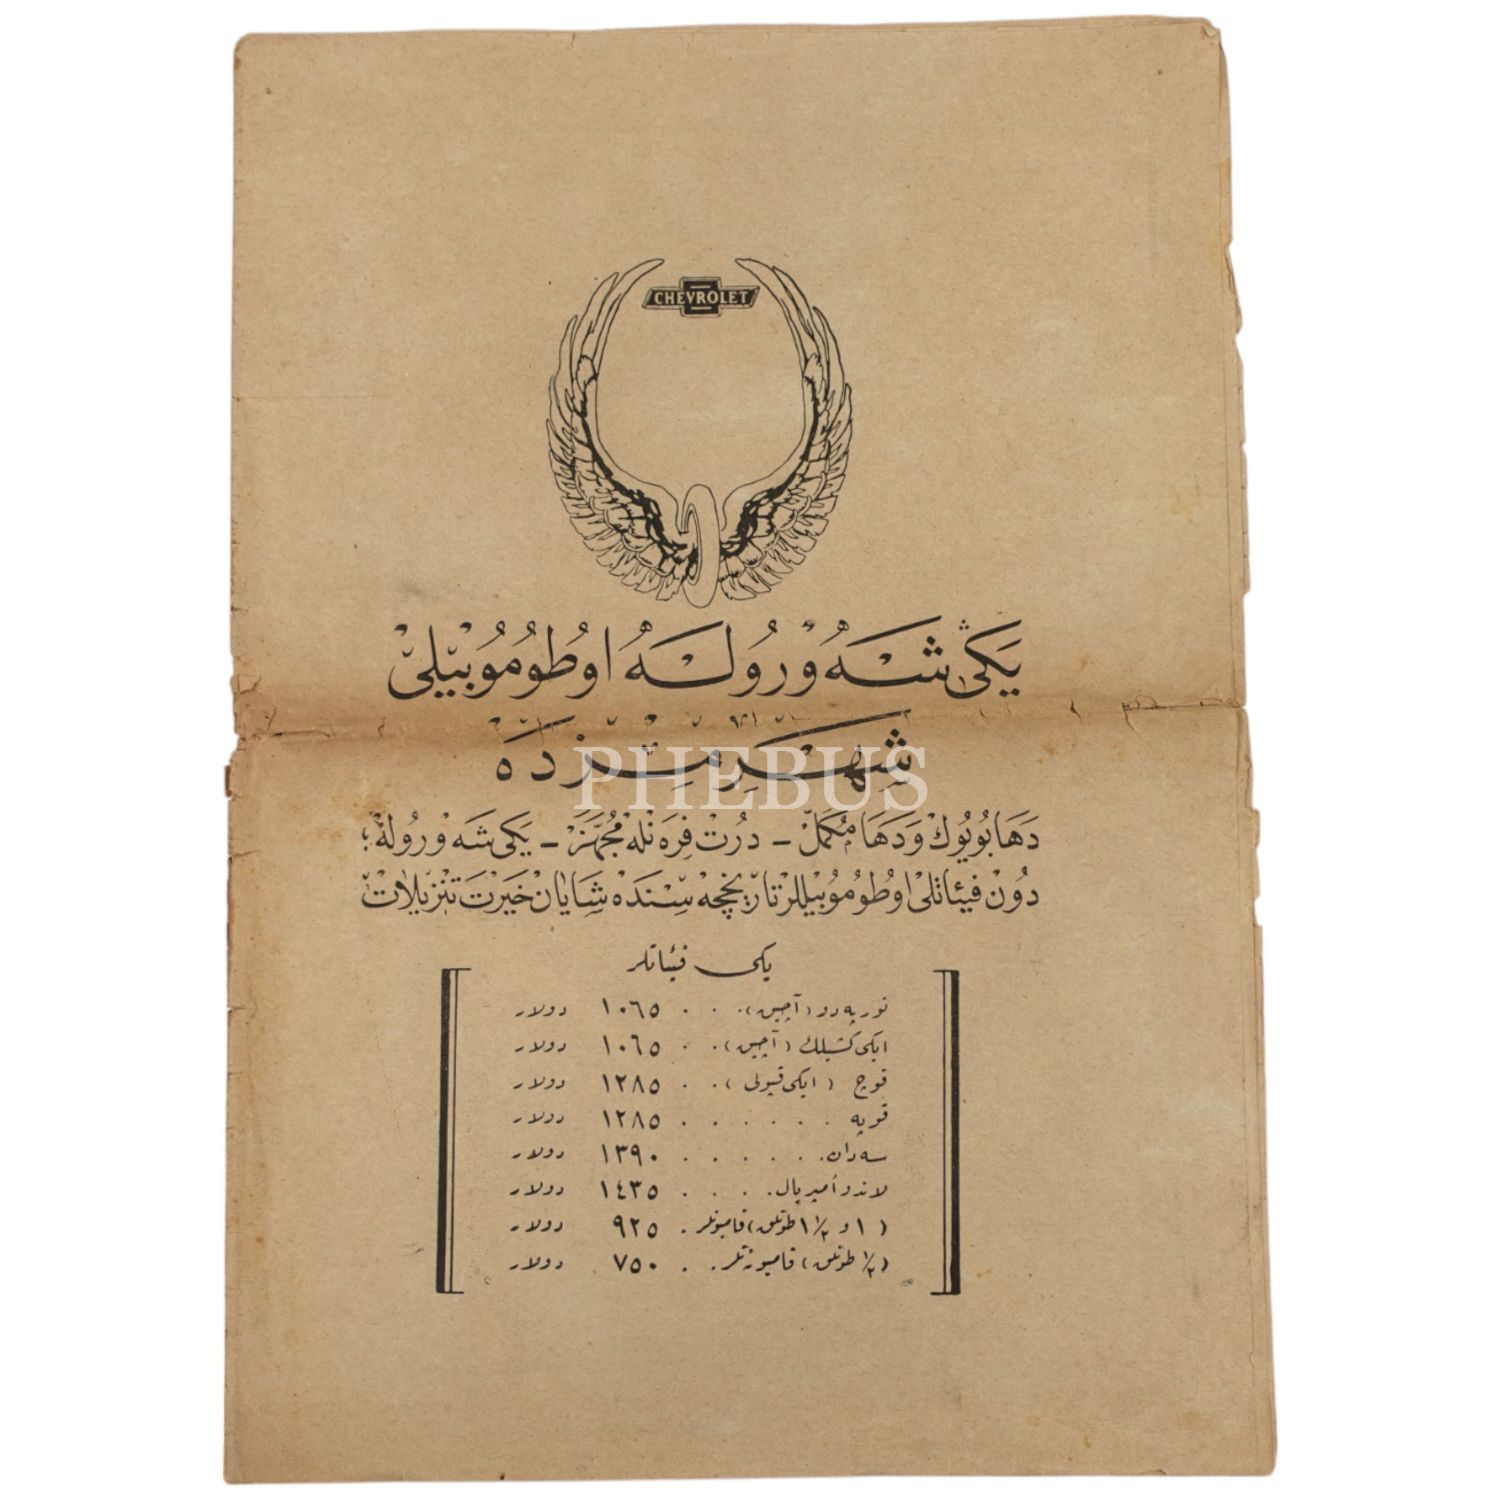 CHEVROLET
یكی شه‌وروله اوطوموبیلی
شهرمزده
PHEBUS
دها بویوك و دها مكمل – درت فره‌نله مجهز – یكی شه‌وروله؛
دون فیئاتلی اوطوموبیللر تاریخچه‌سنده شایان حیرت تنزیلات
یكی فیئاتلر
توریه‌دو (آچیق) . . . ١٠٦٥ دولار
ایكی كشیلك (آچیق) . . ١٠٦٥ دولار
قوچ (ایكی قپولی) . . ١٢٨٥ دولار
قوپه . . . . . . ١٢٨٥ دولار
سه‌دان . . . . . . ١٣٩٠ دولار
لاندو امپریال . . . . ١٤٣٥ دولار
(١ و ١/٢ ١ طونلق) قامیونلر . ٩٢٥ دولار
(١/٢ طونلق) قامیونتلر . . ٧٥٠ دولار